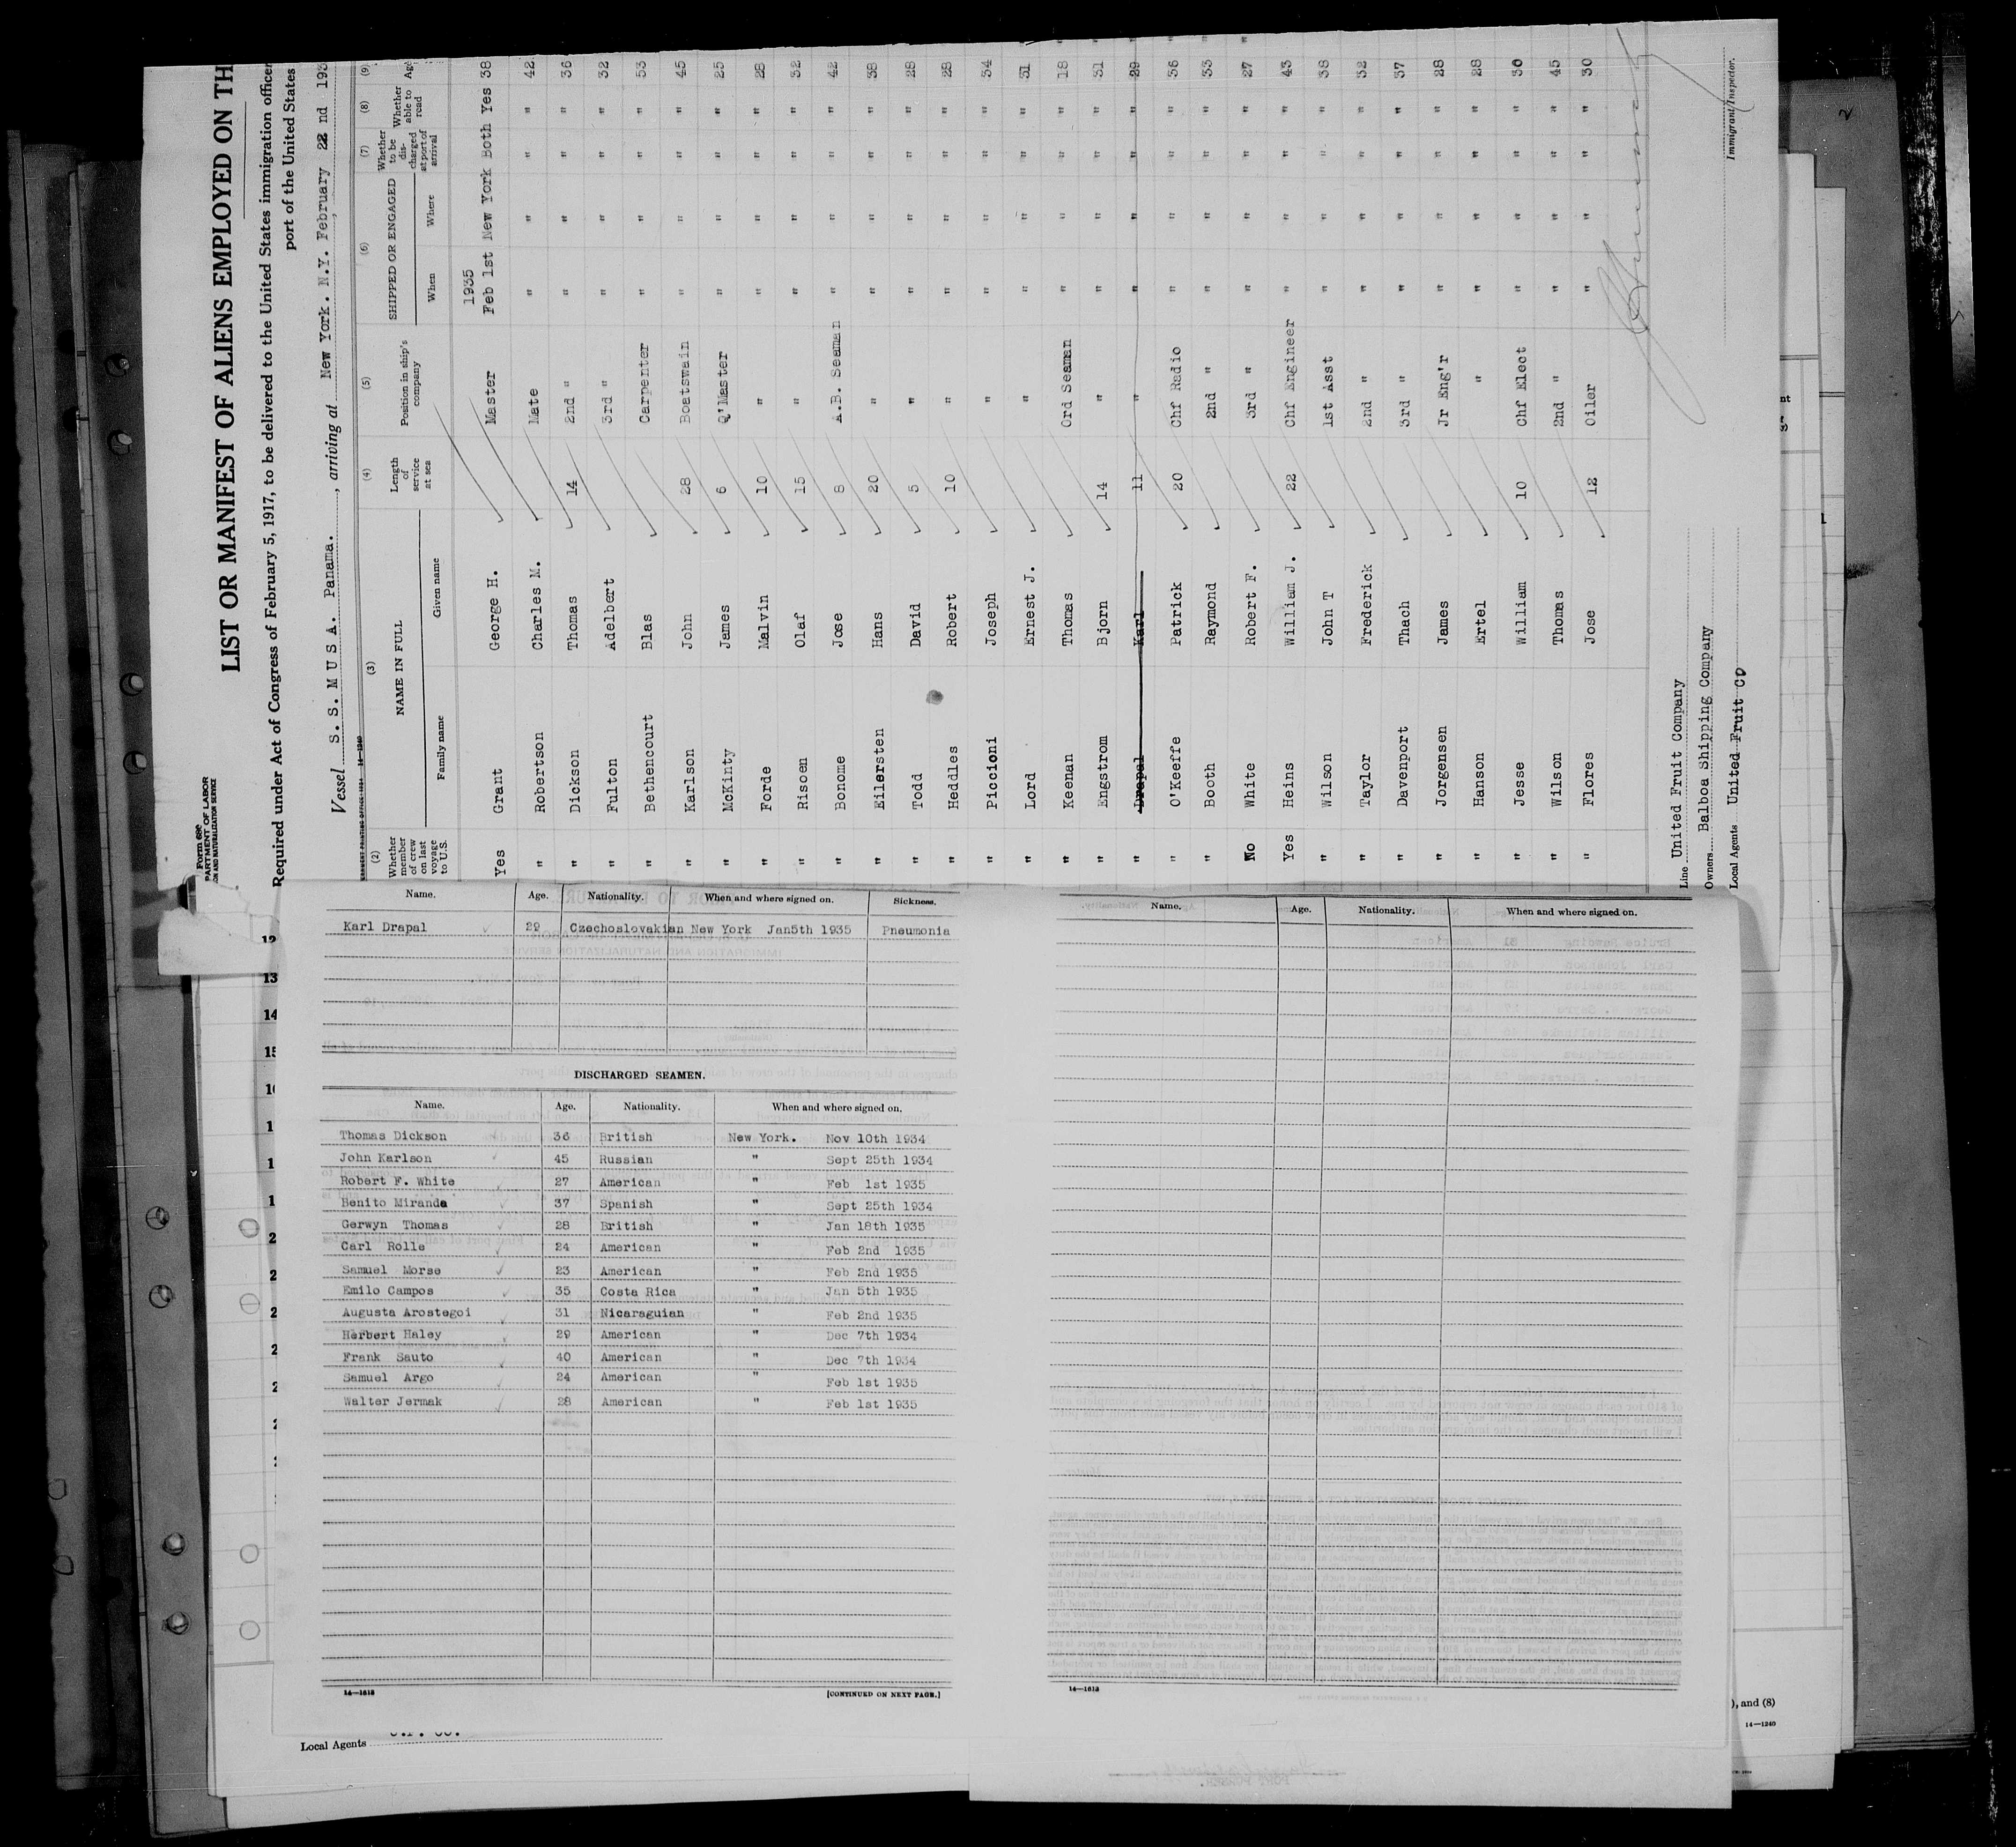 Form 680
DEPARTMENT OF LABOR
LIST OR MANIFEST OF ALIENS EMPLOYED ON TH
Required under Act of Congress of February 5, 1917, to be delivered to the United States immigration officer
port of the United States
Vessel S. S. M U S A. Panama. , arriving at New York. N.Y. February 22 nd 193
(2) (3) (4) (5) (6) (7) (8) (9)
Whether member of crew on last voyage to U.S. NAME IN FULL Family name Given name Length of service at sea Position in ship's company SHIPPED OR ENGAGED When Where Whether to be discharged at port of arrival Whether able to read Age
1935
Yes Grant George H. Master Feb 1st New York Both Yes 38
" Robertson Charles M. Mate " " " " 42
" Dickson Thomas 14 2nd " " " " " 36
" Fulton Adelbert 3rd " " " " " 32
" Bethencourt Blas Carpenter " " " " 53
" Karlson John 28 Boatswain " " " " 45
" McKinty James 6 Q'Master " " " " 25
" Forde Malvin 10 " " " " " 28
" Risoen Olaf 15 " " " " " 32
" Bonome Jose 8 A.B. Seaman " " " " 42
" Eilersten Hans 20 " " " " " 38
" Todd David 5 " " " " " 28
" Heddles Robert 10 " " " " " 28
" Piccioni Joseph " " " " " 34
" Lord Ernest J. " " " " " 31
" Keenan Thomas Ord Seaman " " " " 18
" Engstrom Bjorn 14 " " " " " 31
" Drapal Karl 11 " " " " " 29
" O'Keeffe Patrick 20 Chf Radio " " " " 36
" Booth Raymond 2nd " " " " " 33
No White Robert F. 3rd " " " " " 27
Yes Heins William J. 22 Chf Engineer " " " " 43
" Wilson John T 1st Asst " " " " 38
" Taylor Frederick 2nd " " " " " 32
" Davenport Thach 3rd " " " " " 37
" Jorgensen James Jr Eng'r " " " " 28
" Hanson Ertel " " " " " 28
" Jesse William 10 Chf Elect " " " " 30
" Wilson Thomas 2nd " " " " " 45
" Flores Jose 12 Oiler " " " " 30
Line United Fruit Company
Owners Balboa Shipping Company
Local Agents United Fruit CO
Immigrant Inspector.
Name. Age. Nationality. When and where signed on. Sickness.
Karl Drapal 29 Czechoslovakian New York Jan5th 1935 Pneumonia
DISCHARGED SEAMEN.
Name. Age. Nationality. When and where signed on.
Thomas Dickson 36 British New York. Nov 10th 1934
John Karlson 45 Russian " Sept 25th 1934
Robert F. White 27 American " Feb 1st 1935
Benito Miranda 37 Spanish " Sept 25th 1934
Gerwyn Thomas 28 British " Jan 18th 1935
Carl Rolle 24 American " Feb 2nd 1935
Samuel Morse 23 American " Feb 2nd 1935
Emilo Campos 35 Costa Rica " Jan 5th 1935
Augusta Arostegoi 31 Nicaraguian " Feb 2nd 1935
Herbert Haley 29 American " Dec 7th 1934
Frank Sauto 40 American " Dec 7th 1934
Samuel Argo 24 American " Feb 1st 1935
Walter Jermak 28 American " Feb 1st 1935
14—1613 [CONTINUED ON NEXT PAGE.]
Name. Age. Nationality. When and where signed on.
14—1613
12
13
14
Local Agents
), and (8)
14—1240